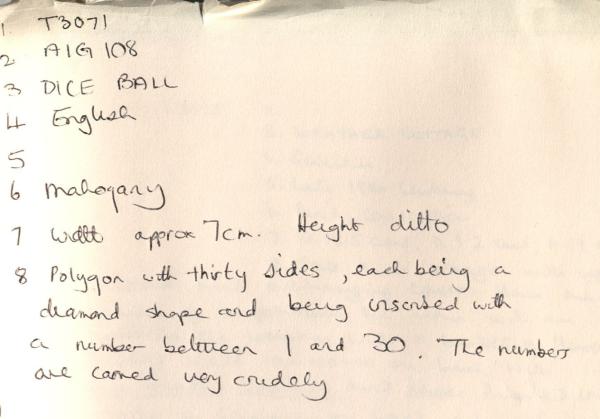 1 T3071
2 AIG 108
3 DICE BALL
4 English
5
6 mahogany
7 Width approx 7cm. Height ditto
8 Polygon with thirty sides, each being a
diamond shape and being inscribed with
a number between 1 and 30. The numbers
are carved very crudely